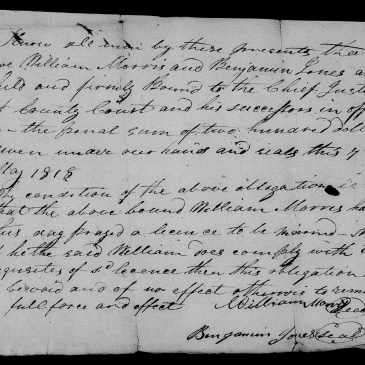 Know all men by these presents that
we William Morris and Benjamin Jones a
held and firmly Bound to the Chief Just
County Court and his successors in off
the penal sum of two hundred doll
under our hands and seals this 7
1818
condition of the above obligation is
that the above bound William Morris ha
a licence to be
the said William does comply with
requisites of sd licence then this obligation
and of no effect otherwis to rema
full force and effect William Morris Seal
Benjamin Jones Seal